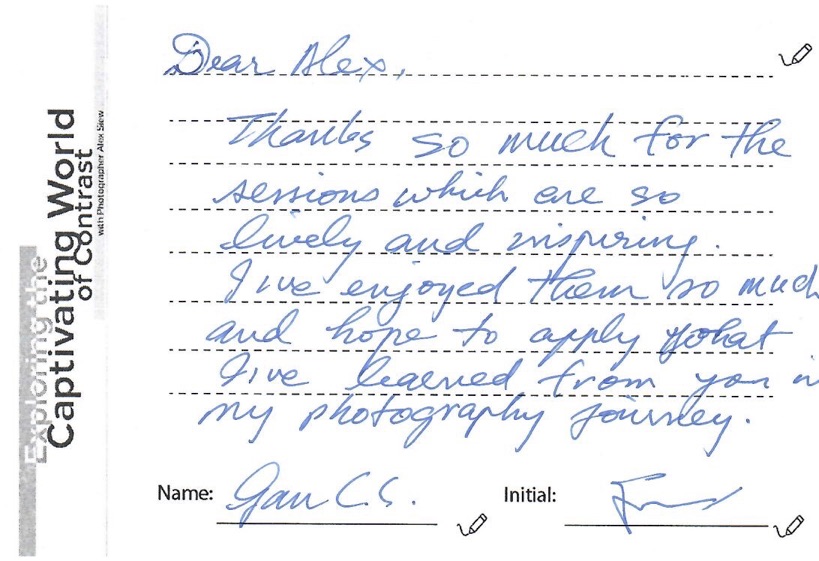 Exploring the
Captivating World
of Contrast
with Photographer Alex Siew
Dear Alex,
Thanks so much for the
sessions which are so
lively and inspiring.
I've enjoyed them so much
and hope to apply what
I've learned from you in
my photography journey.
Name: Gan C.S.
Initial: